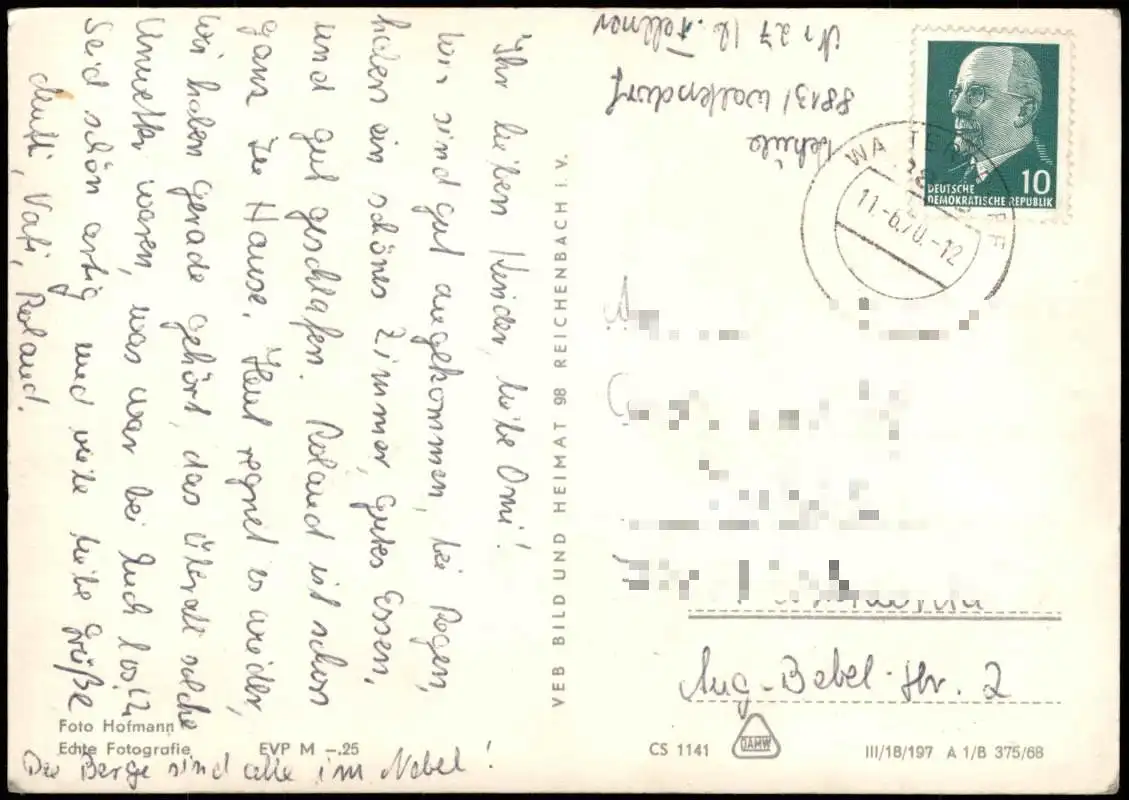 Ihr lieben Kinder, liebe Omi!
Wir sind gut angekommen, bei Regen,
haben ein schönes Zimmer, gutes Essen,
und gut geschlafen. Roland ist schon
ganz zu Hause. Heut regnet es wieder,
wir haben gerade gehört, das überall solche
Unwetter waren, was war bei Euch los??
Seid schön artig und viele liebe Grüße
Mutti, Vati, Roland.
Die Berge sind alle im Nebel!
Foto Hofmann
Echte Fotografie EVP M –.25
VEB BILD UND HEIMAT 98 REICHENBACH I. V.
8813 / Waltersdorf
Nr 27 b. Fellner
DEUTSCHE
DEMOKRATISCHE REPUBLIK
10
11.-6.70.-12
Aug.-Bebel-Str. 2
CS 1141
DAMW
III/18/197 A 1/B 375/68